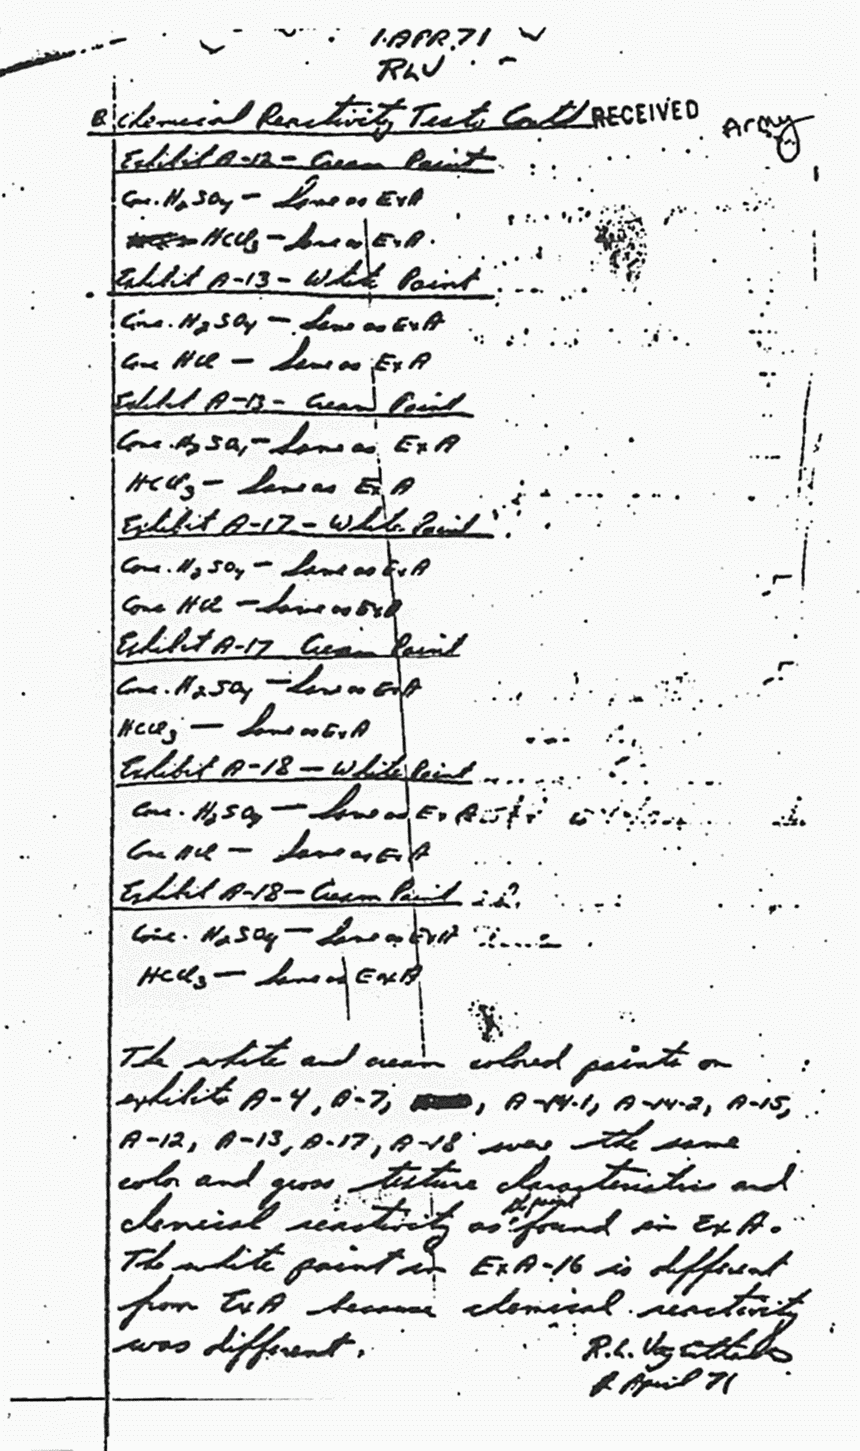 1 APR. 71
RLV
B. Chemical Reactivity Tests Cont'd RECEIVED Army
Exhibit A-12 - Cream Paint
Conc. H2SO4 - Same as Ex A
HCCl3 - Same as Ex A.
Exhibit A-13 - White Paint
Conc. H2SO4 - Same as Ex A
Conc HCl - Same as Ex A
Exhibit A-13 - Cream Paint
Conc. H2SO4 - Same as Ex A
HCCl3 - Same as Ex A
Exhibit A-17 - White Paint
Conc. H2SO4 - Same as Ex A
Conc HCl - Same as Ex A
Exhibit A-17 Cream Paint
Conc. H2SO4 - Same as Ex A
HCCl3 - Same as Ex A
Exhibit A-18 - White Paint
Conc. H2SO4 - Same as Ex A
Conc HCl - Same as Ex A
Exhibit A-18 - Cream Paint
Conc. H2SO4 - Same as Ex A
HCCl3 - Same as Ex A
The white and cream colored paints on
exhibits A-4, A-7, , A-14-1, A-14-2, A-15,
A-12, A-13, A-17, A-18 were the same
color and gross texture characteristics and
chemical reactivity as found in Ex A.
The white paint in Ex A-16 is different
from Ex A because chemical reactivity
was different.
R.L.
April 71